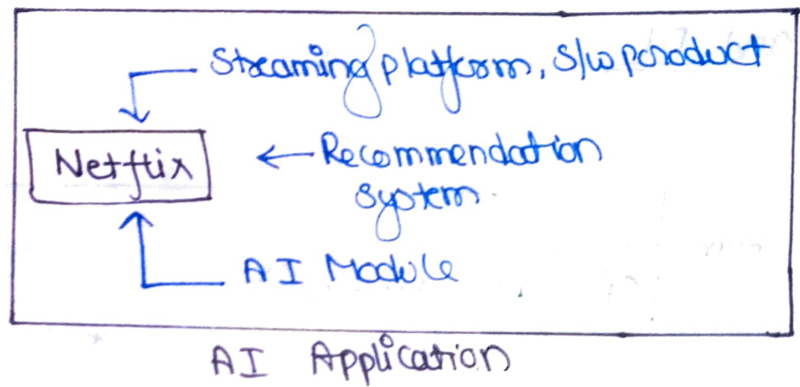 Streaming platform, S/w product
Netflix
← Recommendation
system
AI Module
AI Application